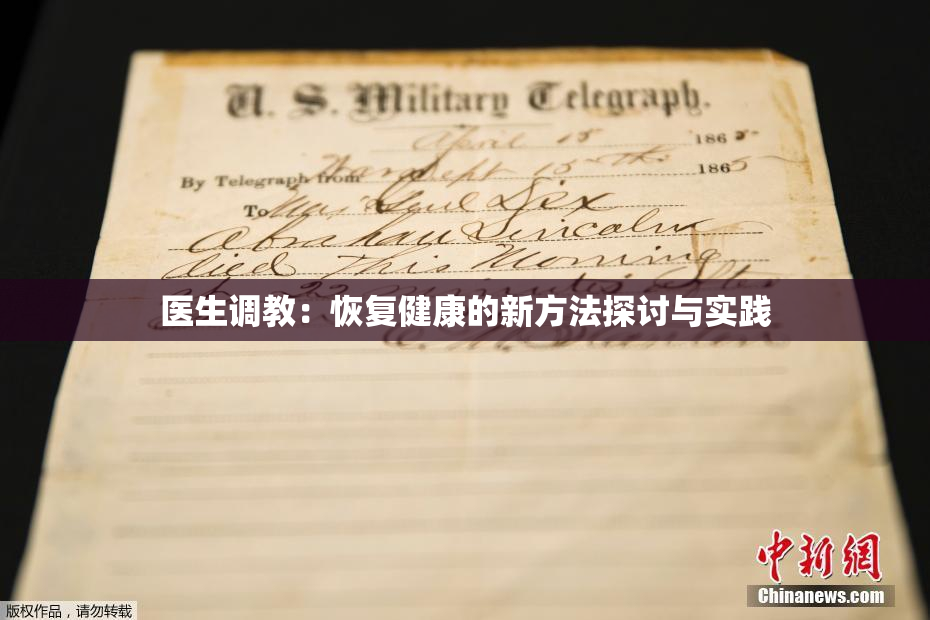 U. S. Military Telegraph.
April 15 1865
By Telegraph from War Dept 15th 1865
To Maj Genl Dix
Abraham Lincoln
died This Morning
at 22 minutes after
医生调教：恢复健康的新方法探讨与实践
E. M. Stanton
中新網
Chinanews.com
版权作品，请勿转载